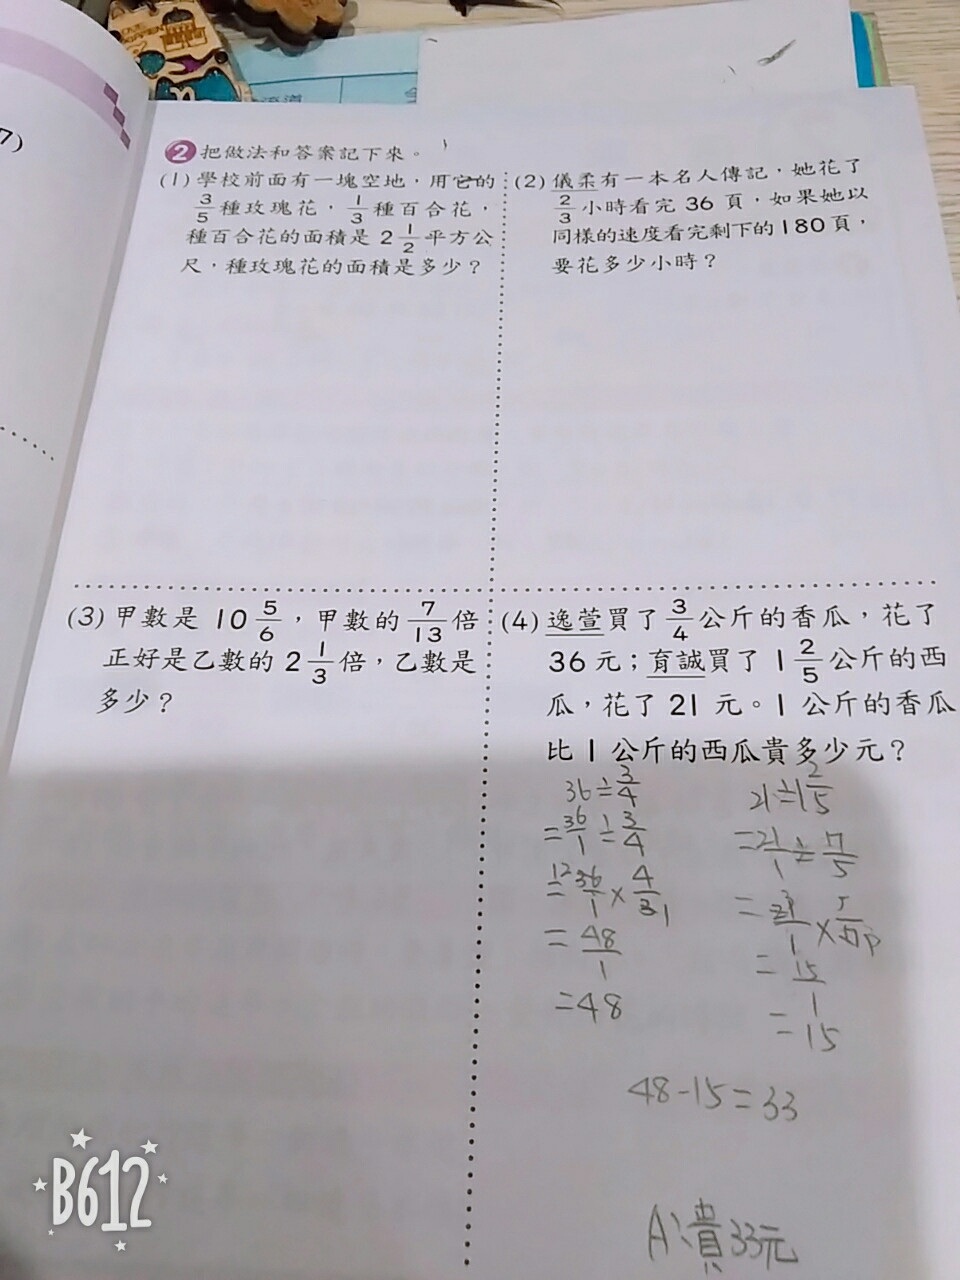 7)
2 把做法和答案記下來。
(1) 學校前面有一塊空地，用它的
3/5 種玫瑰花，1/3 種百合花，
種百合花的面積是 2 1/2 平方公
尺，種玫瑰花的面積是多少？
(2) 儀柔有一本名人傳記，她花了
2/3 小時看完 36 頁，如果她以
同樣的速度看完剩下的 180 頁，
要花多少小時？
(3) 甲數是 10 5/6，甲數的 7/13 倍
正好是乙數的 2 1/3 倍，乙數是
多少？
(4) 逸萱買了 3/4 公斤的香瓜，花了
36 元；育誠買了 1 2/5 公斤的西
瓜，花了 21 元。1 公斤的香瓜
比 1 公斤的西瓜貴多少元？
36÷3/4
=36/1÷3/4
=36/1×4/3 12 1
=48/1
=48
21÷1 2/5
=21/1÷7/5
=21/1×5/7 3
=15/1
=15
48-15=33
A:貴33元
B612